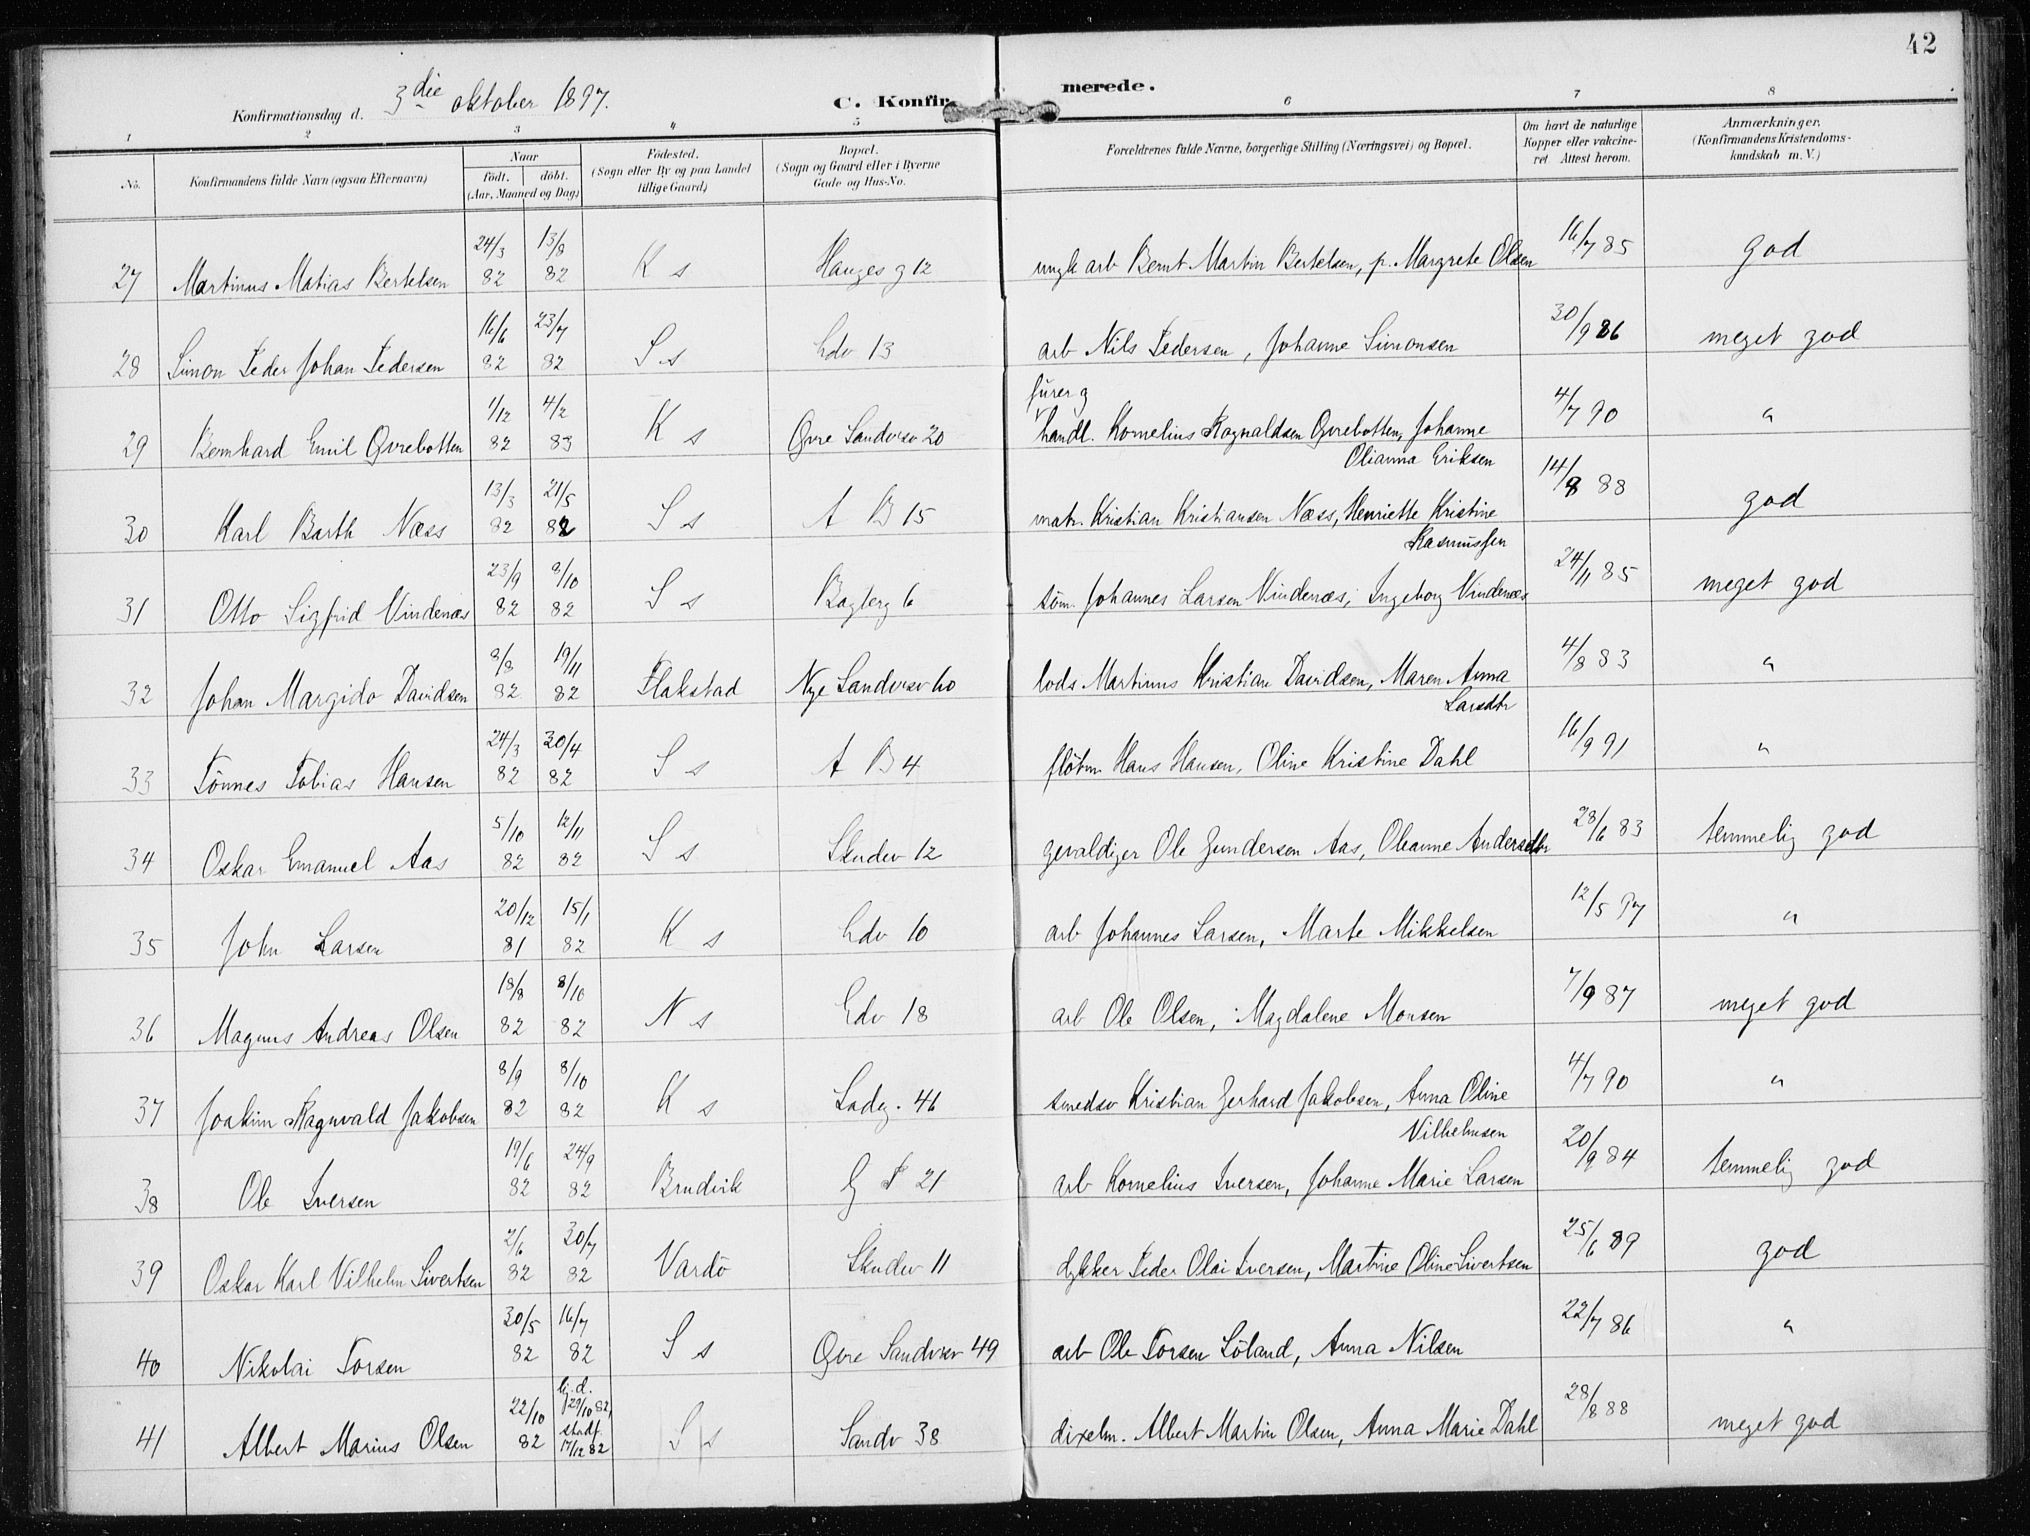 42
Konfirmationsdag d. 3die oktober 1897.
C. Konfirmerede.
1 2 3 4 5 6 7 8
No. Konfirmandens fulde Navn (ogsaa Efternavn) Naar født. døbt. (Aar, Maaned og Dag) Fødested. (Sogn eller By og paa Landet tillige Gaard) Bopæl. (Sogn og Gaard eller i Byerne Gade og Hus-No. Forældrenes fulde Navne, borgerlige Stilling (Næringsvei) og Bopæl. Om havt de naturlige Kopper eller vakcineret. Attest herom. Anmærkninger. (Konfirmandens Kristendomskundskab m. V.)
27 Martinus Matias Bertelsen 24/3 82 13/8 82 K s Hauges g 12 ungk arb Bernt Martin Bertelsen, p. Margrete Olsen 16/7 85 god
28 Simon Peder Johan Pedersen 16/6 82 23/7 82 S s Edv 13 arb Nils Pedersen, Johanne Simonsen 30/9 86 meget god
29 Bernhard Emil Øvrebotten 1/12 82 4/2 83 K s Øvre Sandvsv 20 furer g handl. Kornelius Ragnaldsen Øvrebotten, Johanne Olianna Eriksen 4/7 90 "
30 Karl Barth Næss 13/3 82 21/5 82 S s A B 15 matr. Kristian Kristiansen Næss, Henriette Kristine Rasmussen 14/8 88 god
31 Otto Sigfrid Vindenæs 23/9 82 8/10 82 S s Bagberg 6 tøm. Johannes Larsen Vindenæs, Ingeborg Vindenæs 24/11 85 meget god
32 Johan Margido Davidsen 8/8 82 19/11 82 Flakstad Nye Sandvsv 60 lods Martinus Kristian Davidsen, Maren Anna Larsdtr 4/8 83 "
33 Tønnes Tobias Hansen 24/3 82 30/4 82 S s A B 4 fløtm Hans Hansen, Oline Kristine Dahl 16/9 91 "
34 Oskar Emanuel Aas 5/10 82 12/11 82 S s Skudev 12 gevaldiger Ole Gundersen Aas, Oleanne Andersdtr 28/6 83 temmelig god
35 John Larsen 20/12 81 15/1 82 K s Edv 10 arb Johannes Larsen, Marte Mikkelsen 12/5 97 "
36 Magnus Andreas Olsen 18/8 82 8/10 82 N s Edv 18 arb Ole Olsen, Magdalene Monsen 7/9 87 meget god
37 Joakim Ragnvald Jakobsen 8/9 82 8/10 82 K s Ladeg. 46 smedsv Kristian Gerhard Jakobsen, Anna Oline Vilhelmsen 4/7 90 "
38 Ole Iversen 19/6 82 24/9 82 Bruvik G P 21 arb Kornelius Iversen, Johanne Marie Larsen 20/9 84 temmelig god
39 Oskar Karl Vilhelm Sivertsen 2/6 82 30/7 82 Vardø Skudev 11 dykker Peder Olai Iversen, Martine Oline Sivertsen 25/6 89 god
40 Nikolai Torsen 30/5 82 16/7 82 S s Øvre Sandvsv 49 arb Ole Torsen Søland, Anna Nilsen 22/7 86 "
41 Albert Marius Olsen 22/10 82 hj.d. 29/10 82, stadf. 17/12 82 S s Sandv 38 dixelm. Albert Martin Olsen, Anna Marie Dahl 28/8 88 meget god